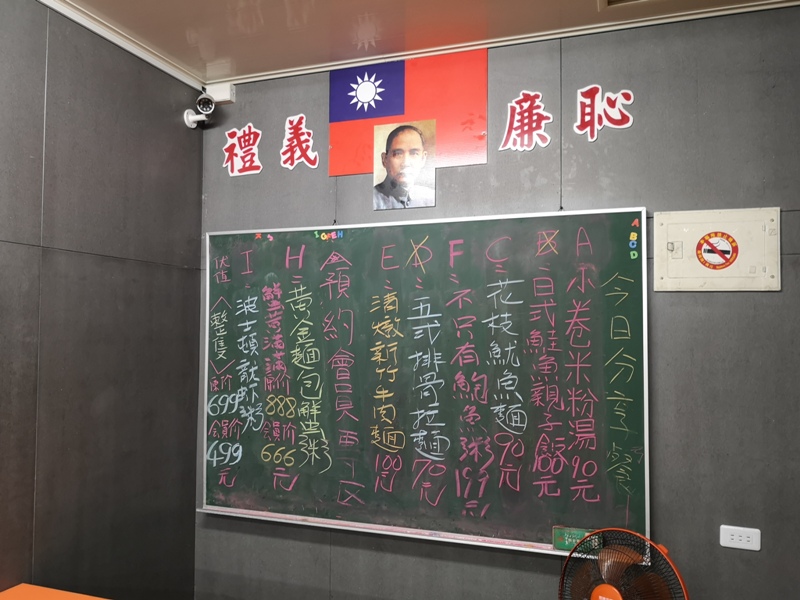 禮義
廉恥
今日分享餐
A 小卷米粉湯90元
B:日式鮭魚親子飯100元
C:花枝魷魚麵90元
F:不只有鮑魚粥199元
D:五式排骨拉麵70元
E:清燉新竹牛肉麵100元
預約會員
H:黃金麵包蟹粥
蟹黃滿滿 原价888 會員价666元
I:波士頓龍虾粥
(整隻)原价699 會員价499元
A
B
C
D